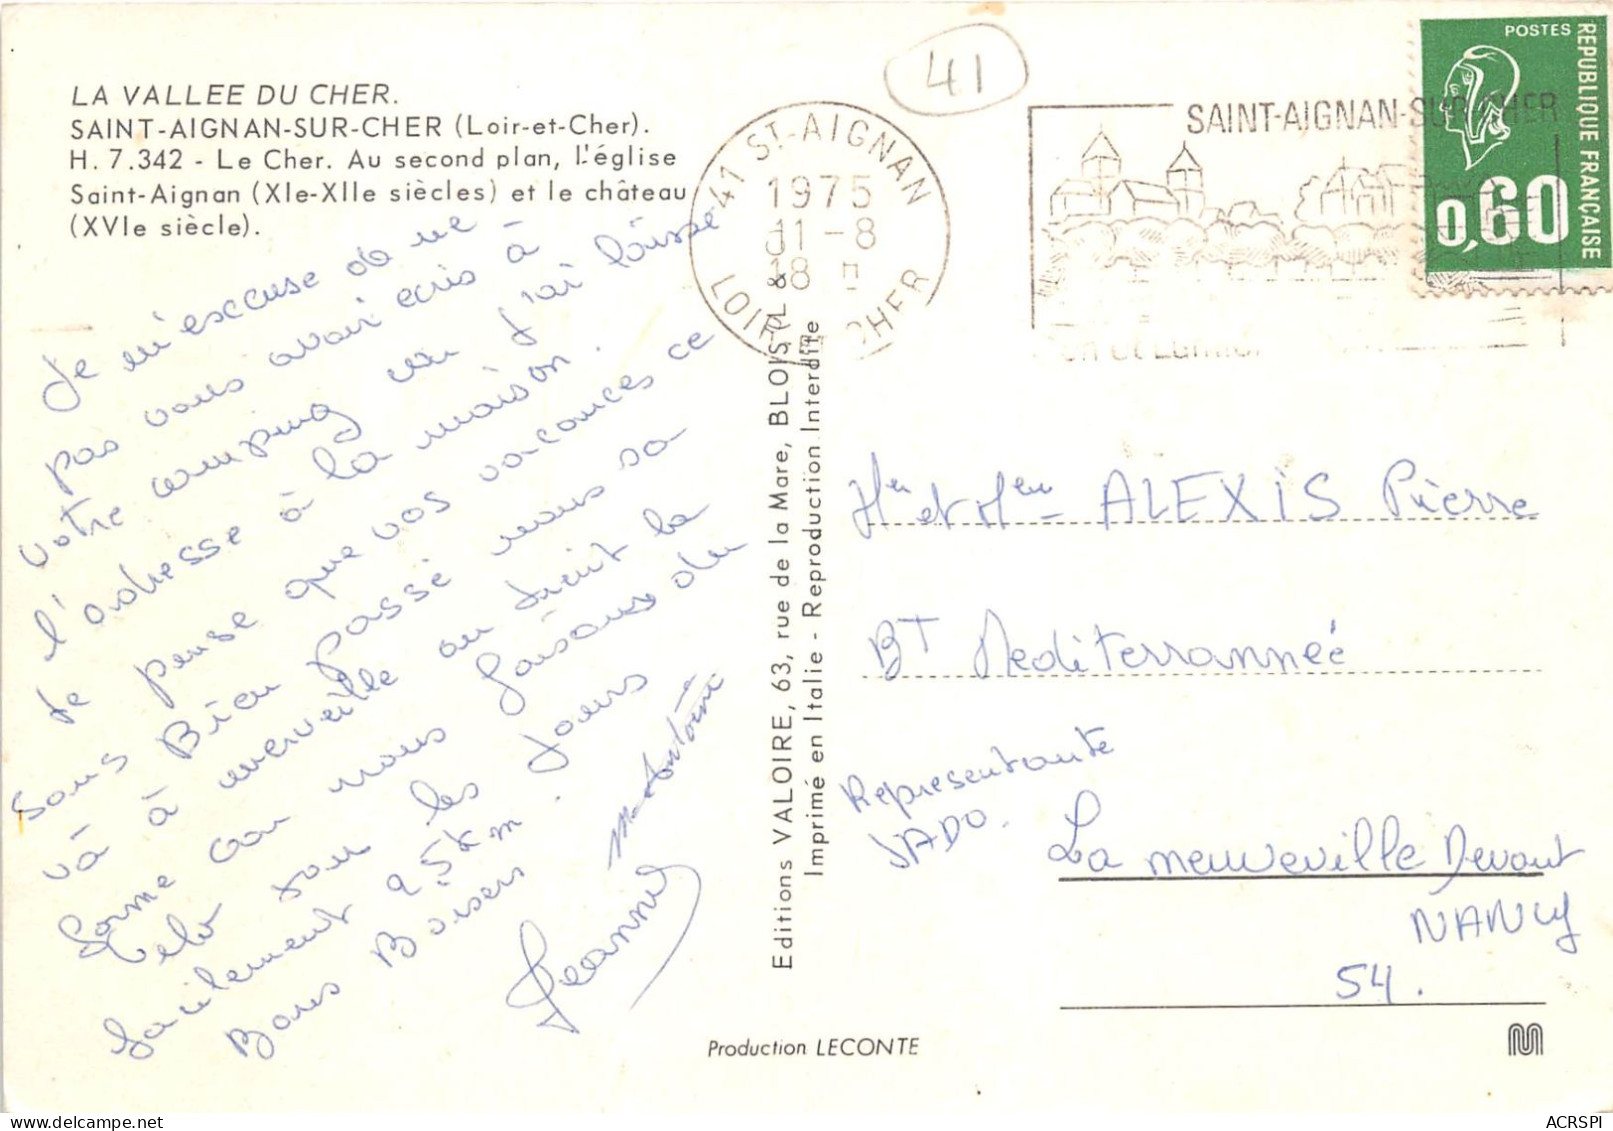 LA VALLEE DU CHER.
SAINT-AIGNAN-SUR-CHER (Loir-et-Cher).
H. 7.342 - Le Cher. Au second plan, l'église
Saint-Aignan (XIe-XIIe siècles) et le château
(XVIe siècle).
Je m'excuse de ne
pas vous avoir ecris à
votre camping car j'ai laisse
l'adresse à la maison.
Je pense que vos vacances ce
sons Bien passé nous sa
và à merveille on tient la
forme car nous faisons du
velo tous les jours
facilement 25km.
Bons Baisers
Jeanne
M. Antoine
41
41 ST-AIGNAN
1975
11-8
18 H
LOIR & CHER
SAINT-AIGNAN-SUR-CHER
POSTES
REPUBLIQUE FRANÇAISE
0,60
Editions VALOIRE, 63, rue de la Mare, BLOIS
Imprimé en Italie - Reproduction Interdite
Mr et Mme ALEXIS Pierre
BT Mediterrannée
Representante
JADO.
La neuveville Devant
NANCY
54.
Production LECONTE
ACRSPI